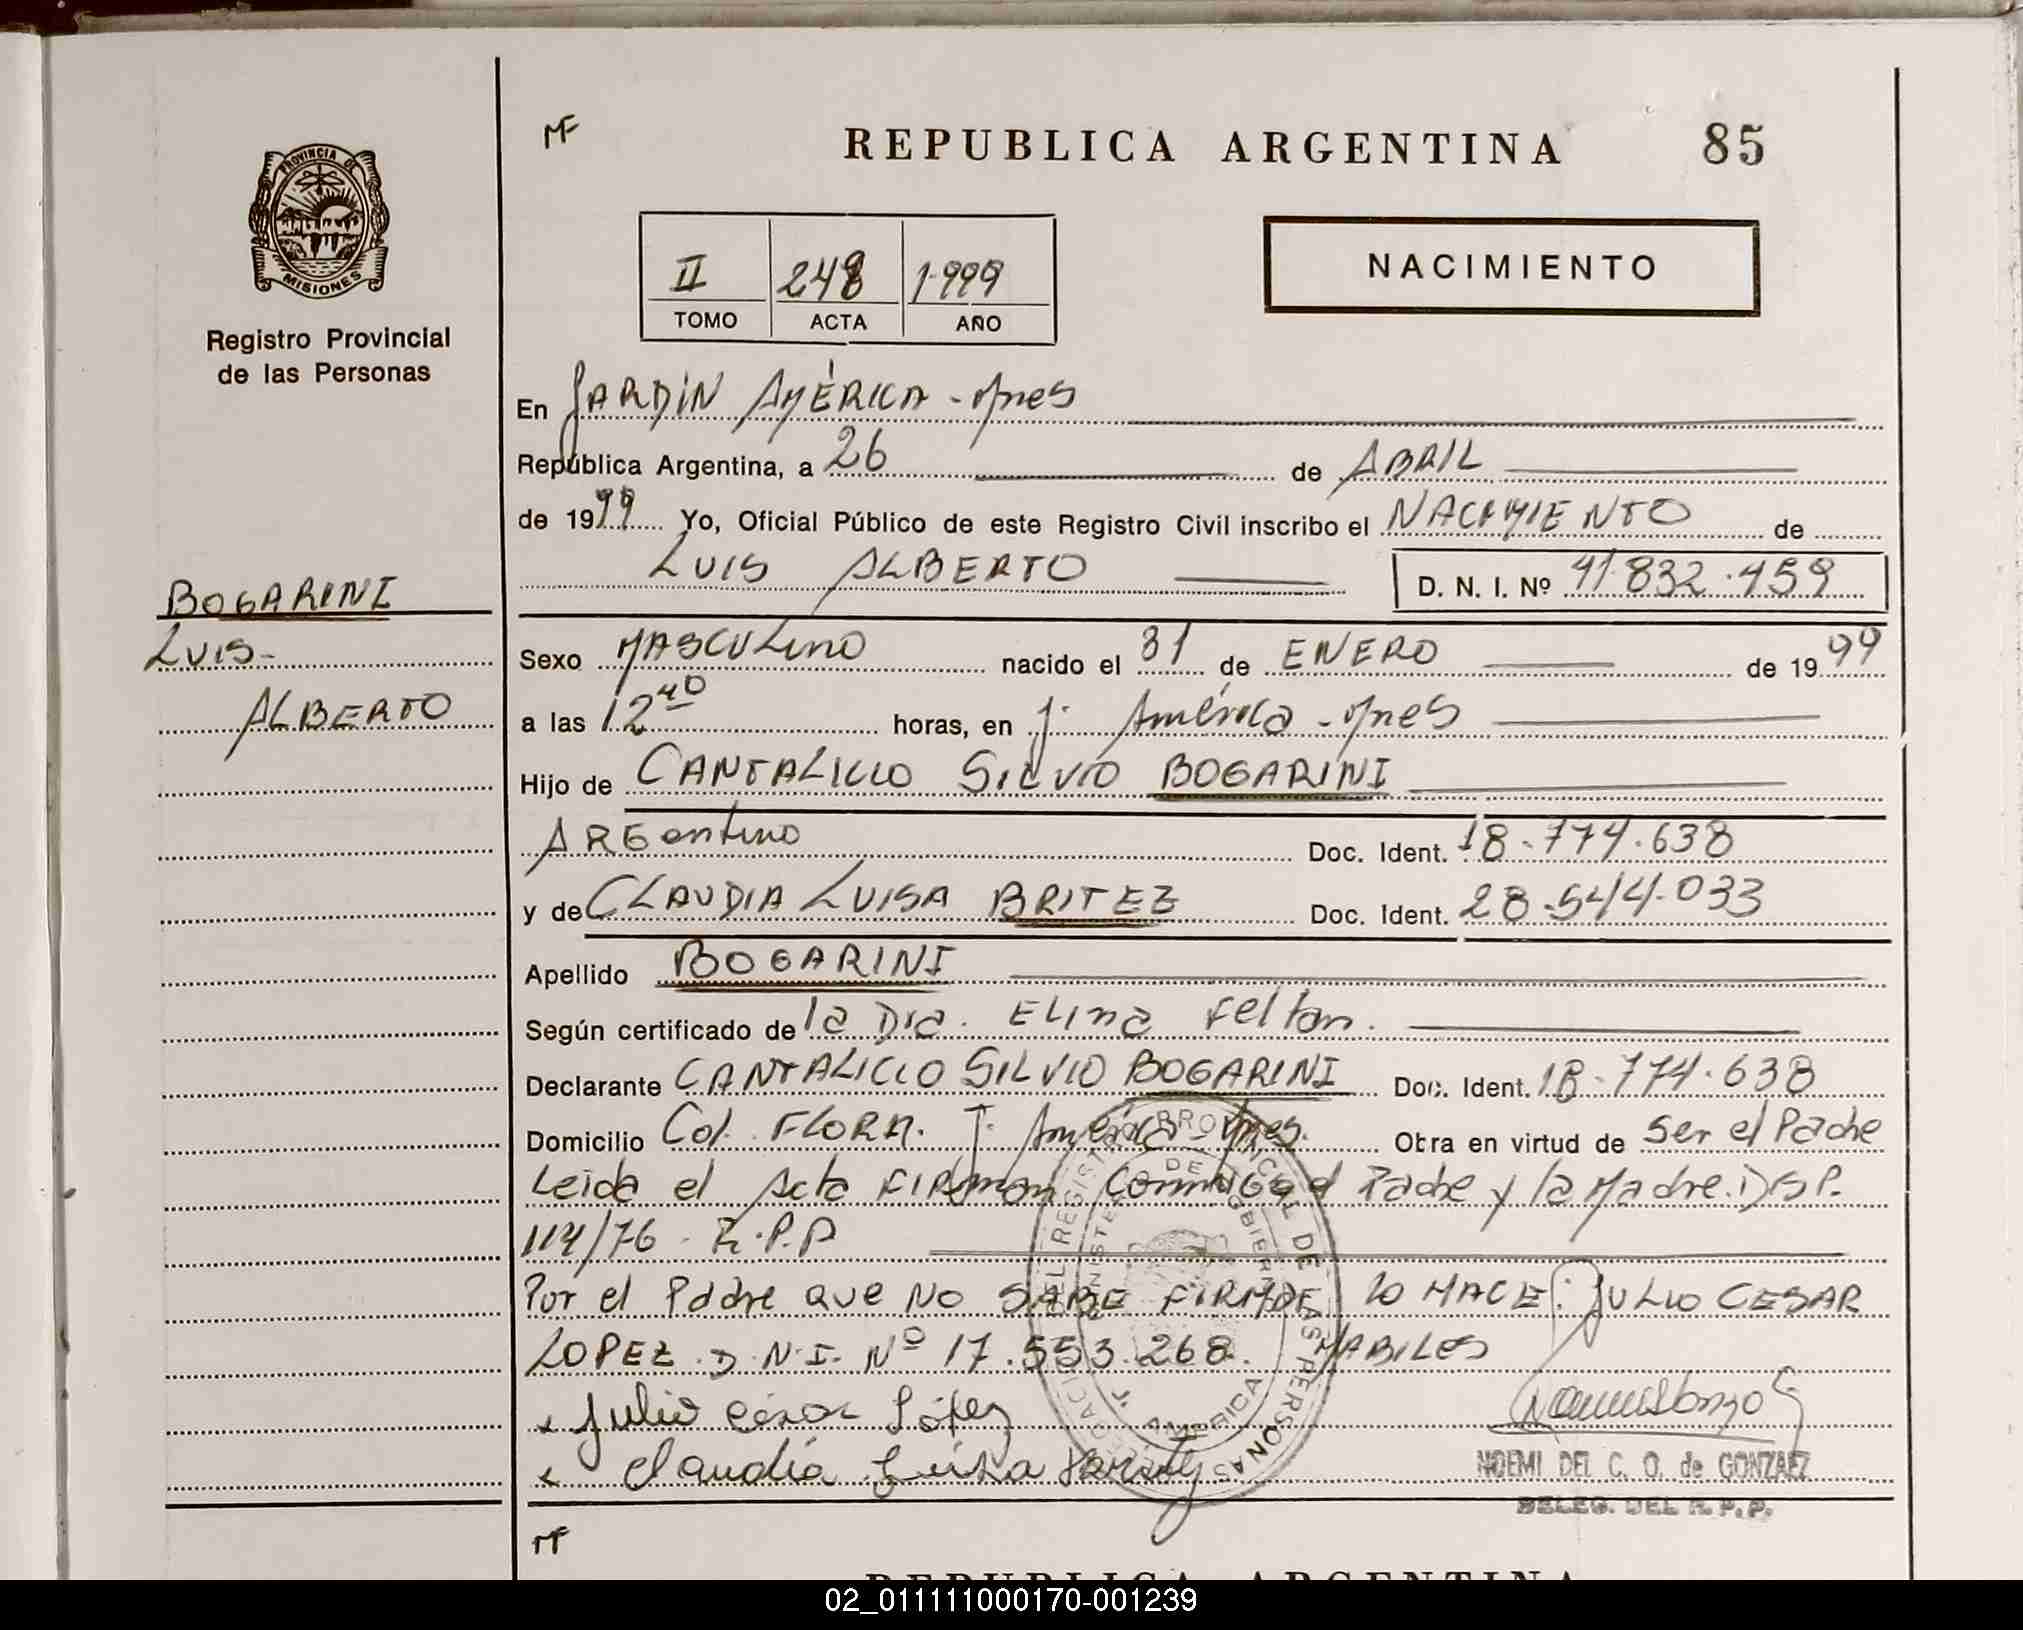 MF
REPUBLICA ARGENTINA 85
PROVINCIA DE
MISIONES
Registro Provincial
de las Personas
II 248 1.999
TOMO ACTA AÑO
NACIMIENTO
En JARDIN AMÉRICA - Mnes
República Argentina, a 26 de ABRIL
de 1999 Yo, Oficial Público de este Registro Civil inscribo el NACIMIENTO de
LUIS ALBERTO D. N. I. Nº 41.832.459
BOGARINI
LUIS-
ALBERTO
Sexo MASCULINO nacido el 31 de ENERO de 1999
a las 12 40 horas, en J. América - Mnes
Hijo de CANTALICIO SILVIO BOGARINI
ARGentino Doc. Ident. 18.774.638
y de CLAUDIA LUISA BRITEZ Doc. Ident. 28.544.033
Apellido BOGARINI
Según certificado de la Dra. ELina Feltan.
Declarante CANTALICIO SILVIO BOGARINI Doc. Ident. 18.774.638
Domicilio Col. FLORA. J. América - Mnes. Obra en virtud de ser el Padre
Leida el Acta FIRman conmigo el Padre y la Madre. DISP.
114/76 - R.P.P
Por el Padre que NO SABE FIRMAR lo HACE: JULIO CESAR
LOPEZ D.N.I. Nº 17.553.268. HABILES
x Julio César López
x Claudia Luisa
NOEMI DEL C. O. de GONZALEZ
DELEG. DEL R.P.P.
MF
REPUBLICA ARGENTINA
02_011111000170-001239